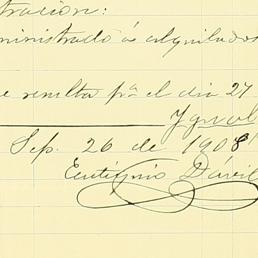 tracion:
ministrado á alquilados
e resulta pª el dia 27
Ygual
Sep. 26 de 1908
Eutifinio Dávil